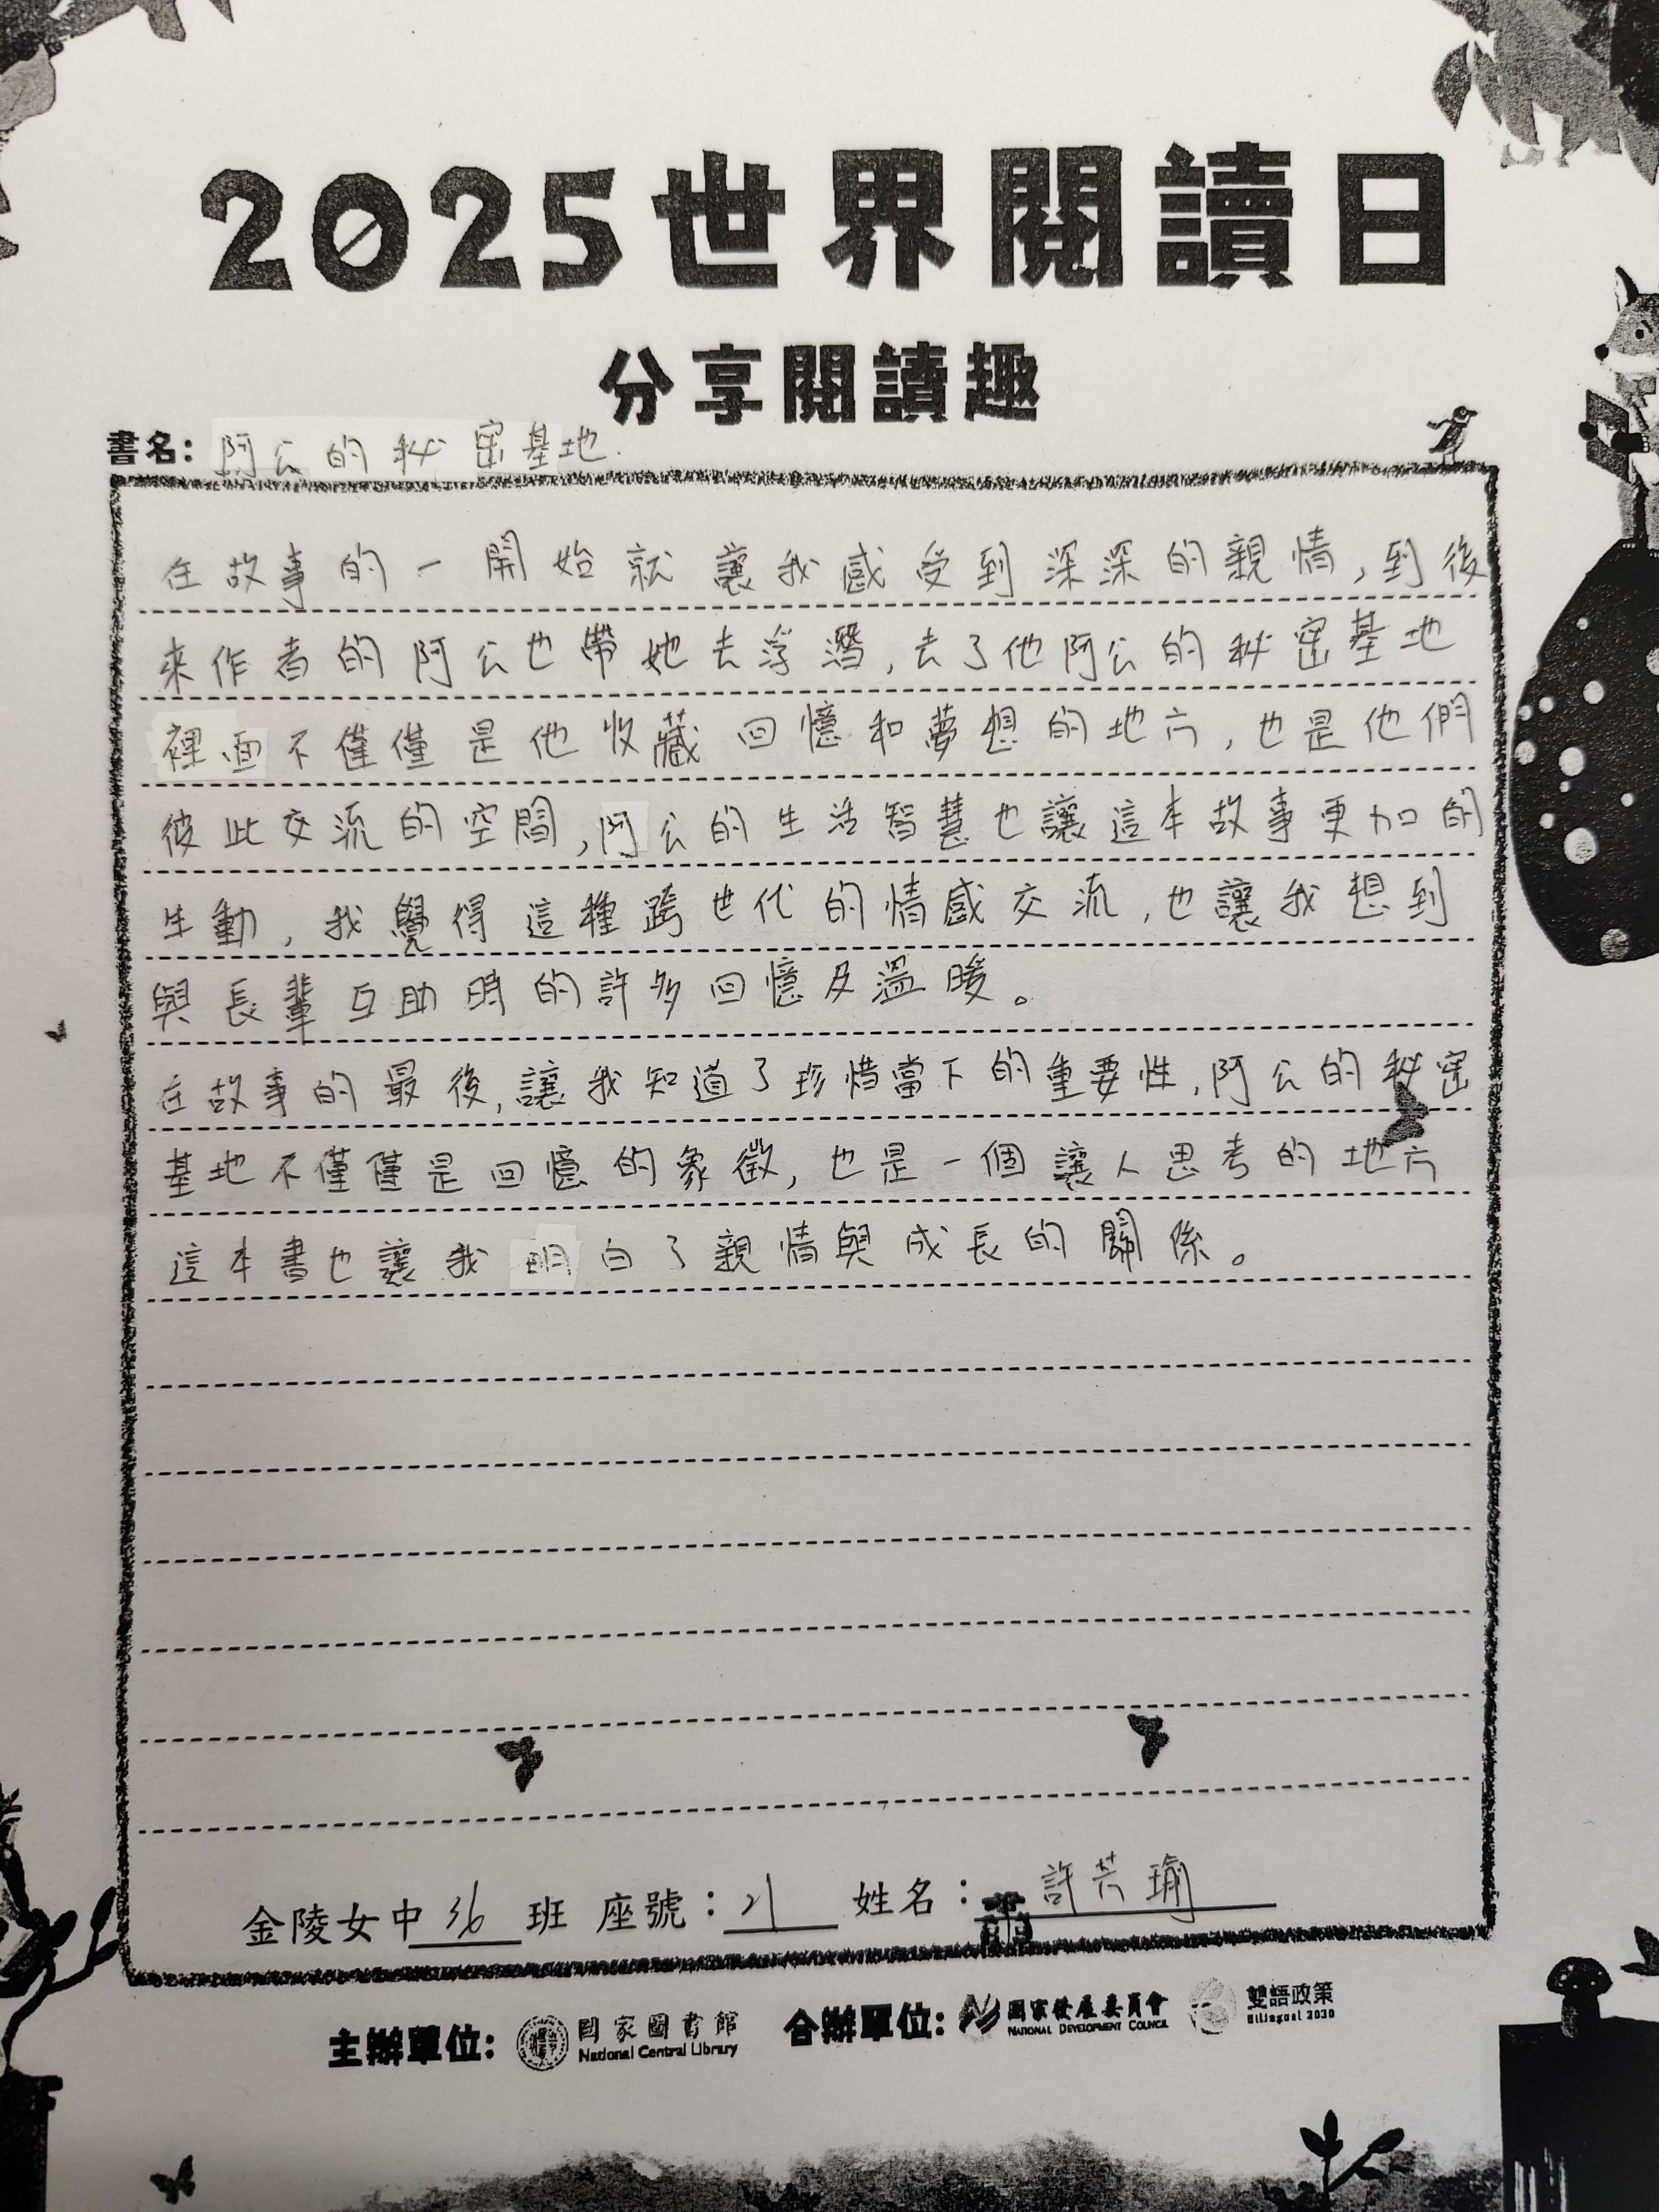 2025世界閱讀日
分享閱讀趣
書名：阿公的秘密基地.
在故事的一開始就讓我感受到深深的親情,到後
來作者的阿公也帶她去浮潛,去了他阿公的秘密基地
裡面不僅僅是他收藏回憶和夢想的地方,也是他們
彼此交流的空間,阿公的生活智慧也讓這本故事更加的
生動,我覺得這種跨世代的情感交流,也讓我想到
與長輩互助時的許多回憶及溫暖。
在故事的最後,讓我知道了珍惜當下的重要性,阿公的秘密
基地不僅僅是回憶的象徵,也是一個讓人思考的地方
這本書也讓我明白了親情與成長的關係。
金陵女中 36 班 座號：21 姓名： 許芸瑜
主辦單位: 國家圖書館 National Central Library 合辦單位: 國家發展委員會 NATIONAL DEVELOPMENT COUNCIL 雙語政策 Bilingual 2030